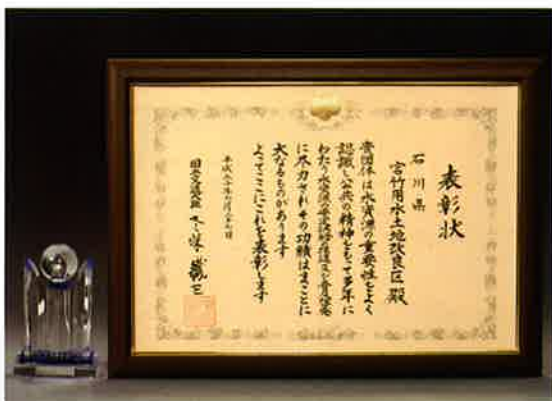 表彰状
石川県
宮竹用水土地改良区殿
貴団体は水資源の重要性をよく
認識し公共の精神をもって多年に
わたり水資源の
に尽力されその功績はまことに
大なるものがあります
よってここにこれを表彰します
平成二十年
国土交通大臣 冬柴鐵三